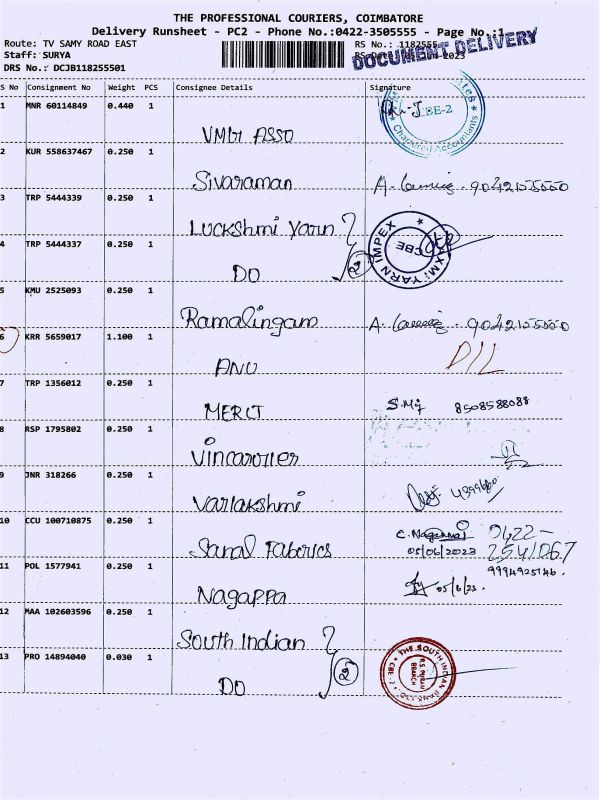 THE PROFESSIONAL COURIERS, COIMBATORE
Delivery Runsheet - PC2 - Phone No.:0422-3505555 - Page No.:1
Route: TV SAMY ROAD EAST RS No.: 1182555
Staff: SURYA
DOCUMENT DELIVERY
DRS No.: DCJB118255501
S No Consignment No Weight PCS Consignee Details Signature
1 MNR 60114849 0.440 1
CBE-2
Chartered Accountants
VMBr ASSO
2 KUR 558637467 0.250 1
Sivaraman 9042155550
3 TRP 5444339 0.250 1
Luckshmi Yarn
4 TRP 5444337 0.250 1
DO 2
YARN IMPEX
CBE
5 KMU 2525093 0.250 1
Ramalingam 9042155550
6 KRR 5659017 1.100 1
ANU D/L
7 TRP 1356012 0.250 1
MERIT 8508588088
8 RSP 1795802 0.250 1
Vincarrier
9 JNR 318266 0.250 1
Varlakshmi
10 CCU 100710875 0.250 1
Sanal Fabrics C. Nagamani 0422-
05/06/2023 2541067
11 POL 1577941 0.250 1
9994925146.
Nagappa 05/6/23.
12 MAA 102603596 0.250 1
South Indian
13 PRO 14894040 0.030 1
DO 2
THE SOUTH INDIAN
R.S. PURAM
BRANCH
CBE-2